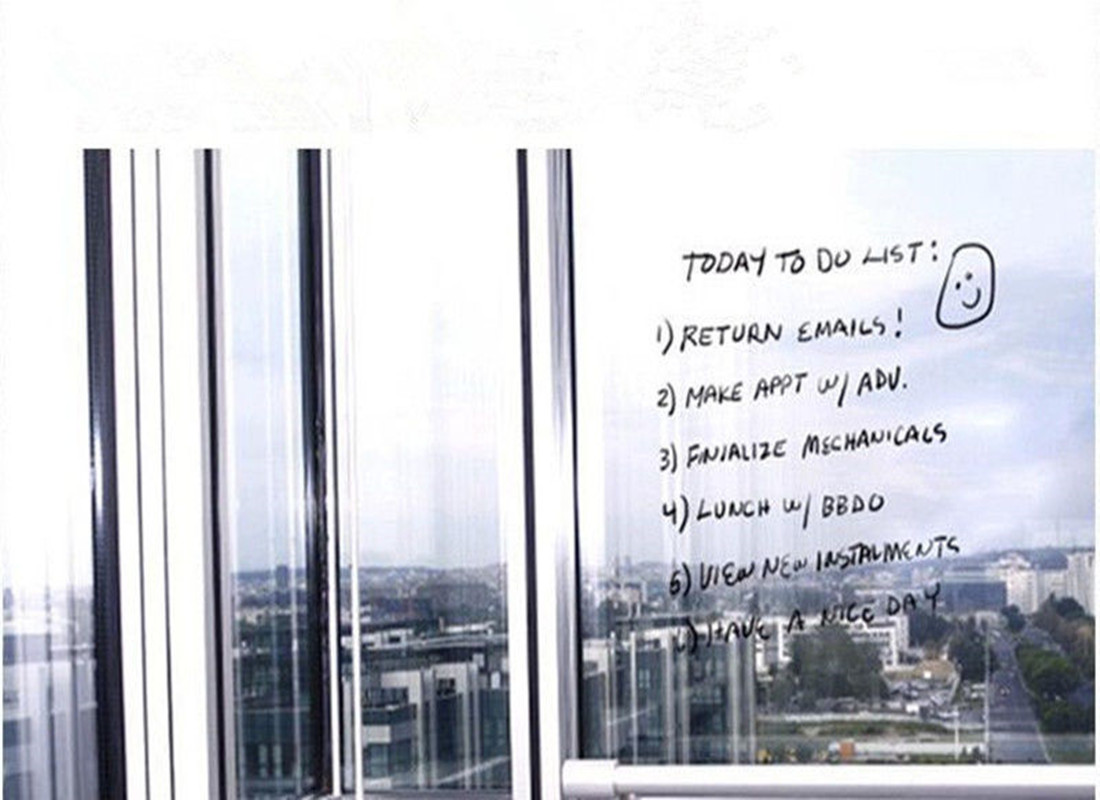 TODAY TO DO LIST:
1) RETURN EMAILS!
2) MAKE APPT W/ ADV.
3) FINIALIZE MECHANICALS
4) LUNCH W/ BBDO
5) VIEW NEW INSTALMENTS
6) HAVE A NICE DAY